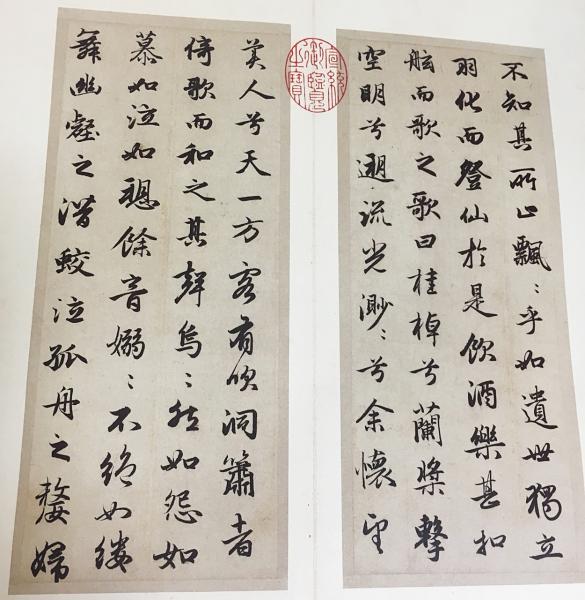 不知其所止飄〻乎如遺世獨立
羽化而登仙於是飲酒樂甚扣
舷而歌之歌曰桂棹兮蘭槳擊
空明兮遡流光渺〻兮余懷望
宣統
御覽
之寶
美人兮天一方客有吹洞簫者
倚歌而和之其聲烏〻然如怨如
慕如泣如愬餘音嫋〻不絕如縷
舞幽壑之潛蛟泣孤舟之嫠婦